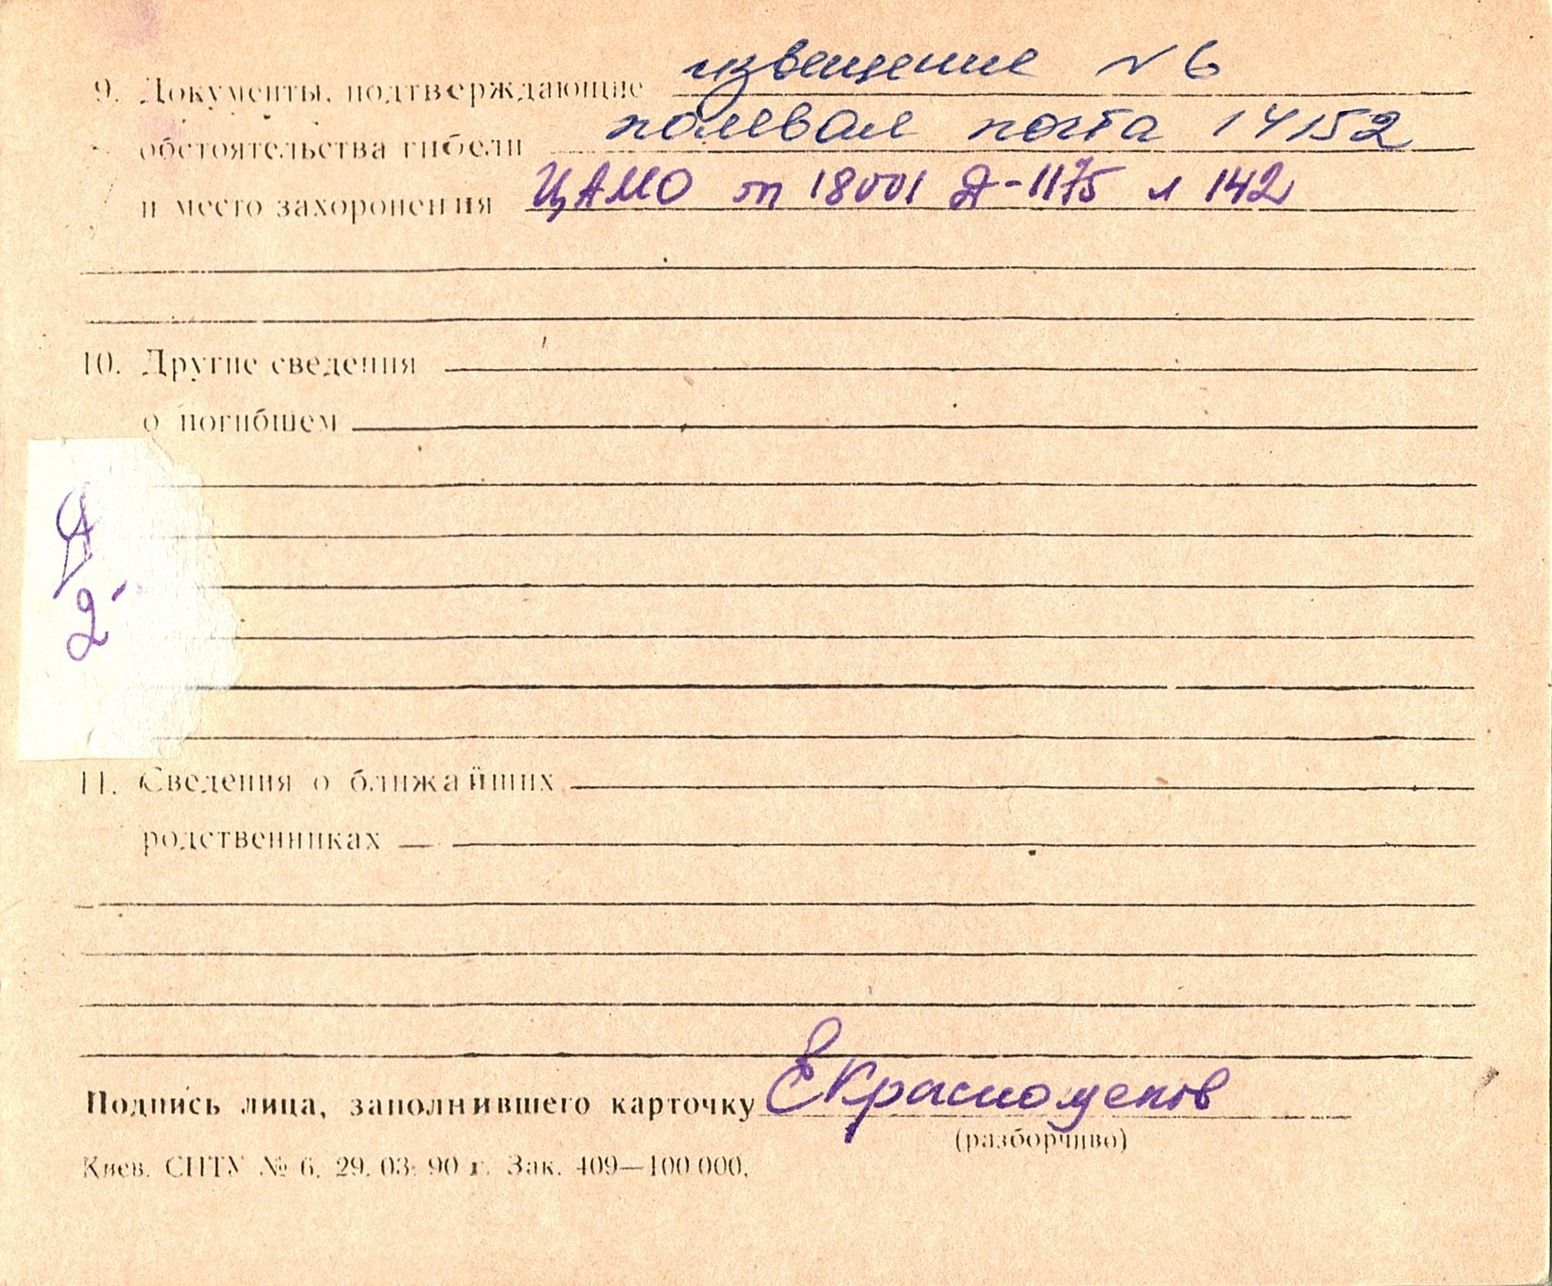 9. Документы, подтверждающие извещение N 6
обстоятельства гибели полевая почта 14152
и место захоронения ЦАМО оп 18001 Д-1175 л 142
10. Другие сведения
о погибшем
2
11. Сведения о ближайших
родственниках
Подпись лица, заполнившего карточку
(разборчиво)
Киев. СПТУ № 6. 29. 03. 90 г. Зак. 409—100 000.